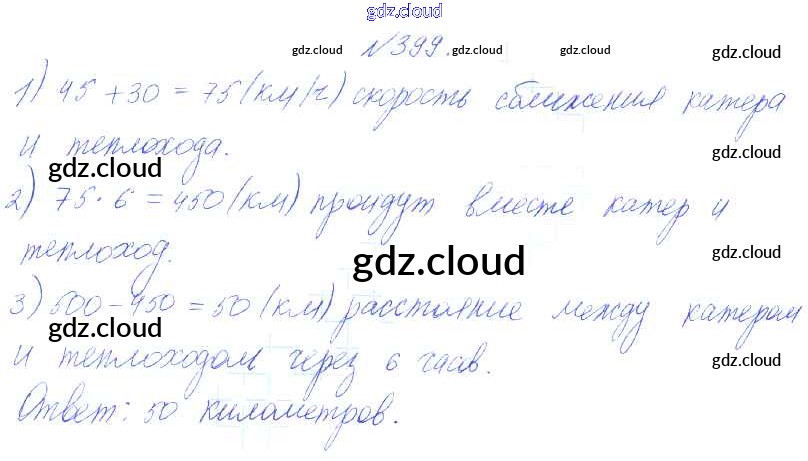 gdz.cloud
№399.
gdz.cloud gdz.cloud gdz.cloud gdz.cloud
1) 45 + 30 = 75 (км/ч) скорость сближения катера
и теплохода.
gdz.cloud gdz.cloud
2) 75 · 6 = 450 (км) пройдут вместе катер и
теплоход.
gdz.cloud gdz.cloud
3) 500 – 450 = 50 (км) расстояние между катером
gdz.cloud
и теплоходом через 6 часов.
gdz.cloud
Ответ: 50 километров.